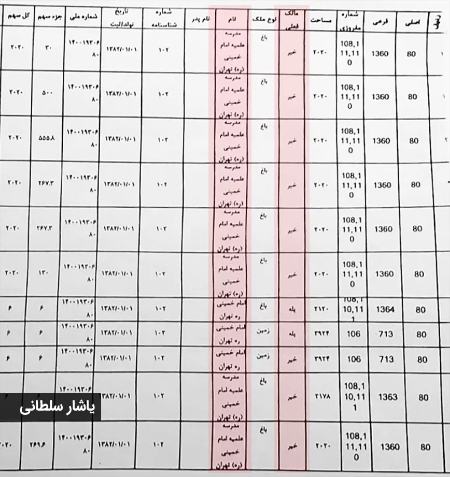 ردیف اصلی فرعی شماره مفروزی مساحت مالک فعلی نوع ملک نام نام پدر شماره شناسنامه تاریخ تولد/ثبت شماره ملی جزء سهم کل سهم
۱ 80 1360 108,1 11,11 0 ۲۰۲۰ خیر باغ مدرسه علمیه امام خمینی (ره) تهران ۱۰۲ ۱۳۸۲/۰۱/۰۱ ۱۴۰۰۱۹۳۰۶ ۸۰ ۳۰ ۲۰۲۰
80 1360 108,1 11,11 0 ۲۰۲۰ خیر باغ مدرسه علمیه امام خمینی (ره) تهران ۱۰۲ ۱۳۸۲/۰۱/۰۱ ۱۴۰۰۱۹۳۰۶ ۸۰ ۵۰۰ ۲۰۲۰
80 1360 108,1 11,11 0 ۲۰۲۰ خیر باغ مدرسه علمیه امام خمینی (ره) تهران ۱۰۲ ۱۳۸۲/۰۱/۰۱ ۱۴۰۰۱۹۳۰۶ ۸۰ ۵۵۵.۸ ۲۰۲۰
80 1360 108,1 11,11 0 ۲۰۲۰ خیر باغ مدرسه علمیه امام خمینی (ره) تهران ۱۰۲ ۱۳۸۲/۰۱/۰۱ ۱۴۰۰۱۹۳۰۶ ۸۰ ۲۶۷.۳ ۲۰۲۰
80 1360 108,1 11,11 0 ۲۰۲۰ خیر باغ مدرسه علمیه امام خمینی (ره) تهران ۱۰۲ ۱۳۸۲/۰۱/۰۱ ۱۴۰۰۱۹۳۰۶ ۸۰ ۲۶۷.۳ ۲۰۲۰
80 1360 108,1 11,11 0 ۲۰۲۰ خیر باغ مدرسه علمیه امام خمینی (ره) تهران ۱۰۲ ۱۳۸۲/۰۱/۰۱ ۱۴۰۰۱۹۳۰۶ ۸۰ ۱۳۰ ۲۰۲۰
80 1364 108,1 10,11 1 ۲۱۲۰ بله باغ امام خمینی ره تهران ۱۰۲ ۱۳۸۲/۰۱/۰۱ ۱۴۰۰۱۹۳۰۶ ۸۰ ۶ ۶
80 713 106 ۳۹۲۴ بله زمین امام خمینی ره تهران ۱۰۲ ۱۳۸۲/۰۱/۰۱ ۱۴۰۰۱۹۳۰۶ ۸۰ ۶ ۶
80 713 106 ۳۹۲۴ خیر زمین امام خمینی ره تهران ۱۰۲ ۱۳۸۲/۰۱/۰۱ ۱۴۰۰۱۹۳۰۶ ۸۰ ۶ ۶
80 1363 108,1 10,11 1 ۲۱۷۸ خیر باغ مدرسه علمیه امام خمینی (ره) تهران ۱۰۲ ۱۳۸۲/۰۱/۰۱ ۶ ۶
80 1360 108,1 11,11 0 ۲۰۲۰ خیر باغ مدرسه علمیه امام خمینی (ره) تهران ۱۰۲ ۱۳۸۲/۰۱/۰۱ ۱۴۰۰۱۹۳۰۶ ۸۰ ۲۶۹.۶ ۲۰۲۰
یاشار سلطانی